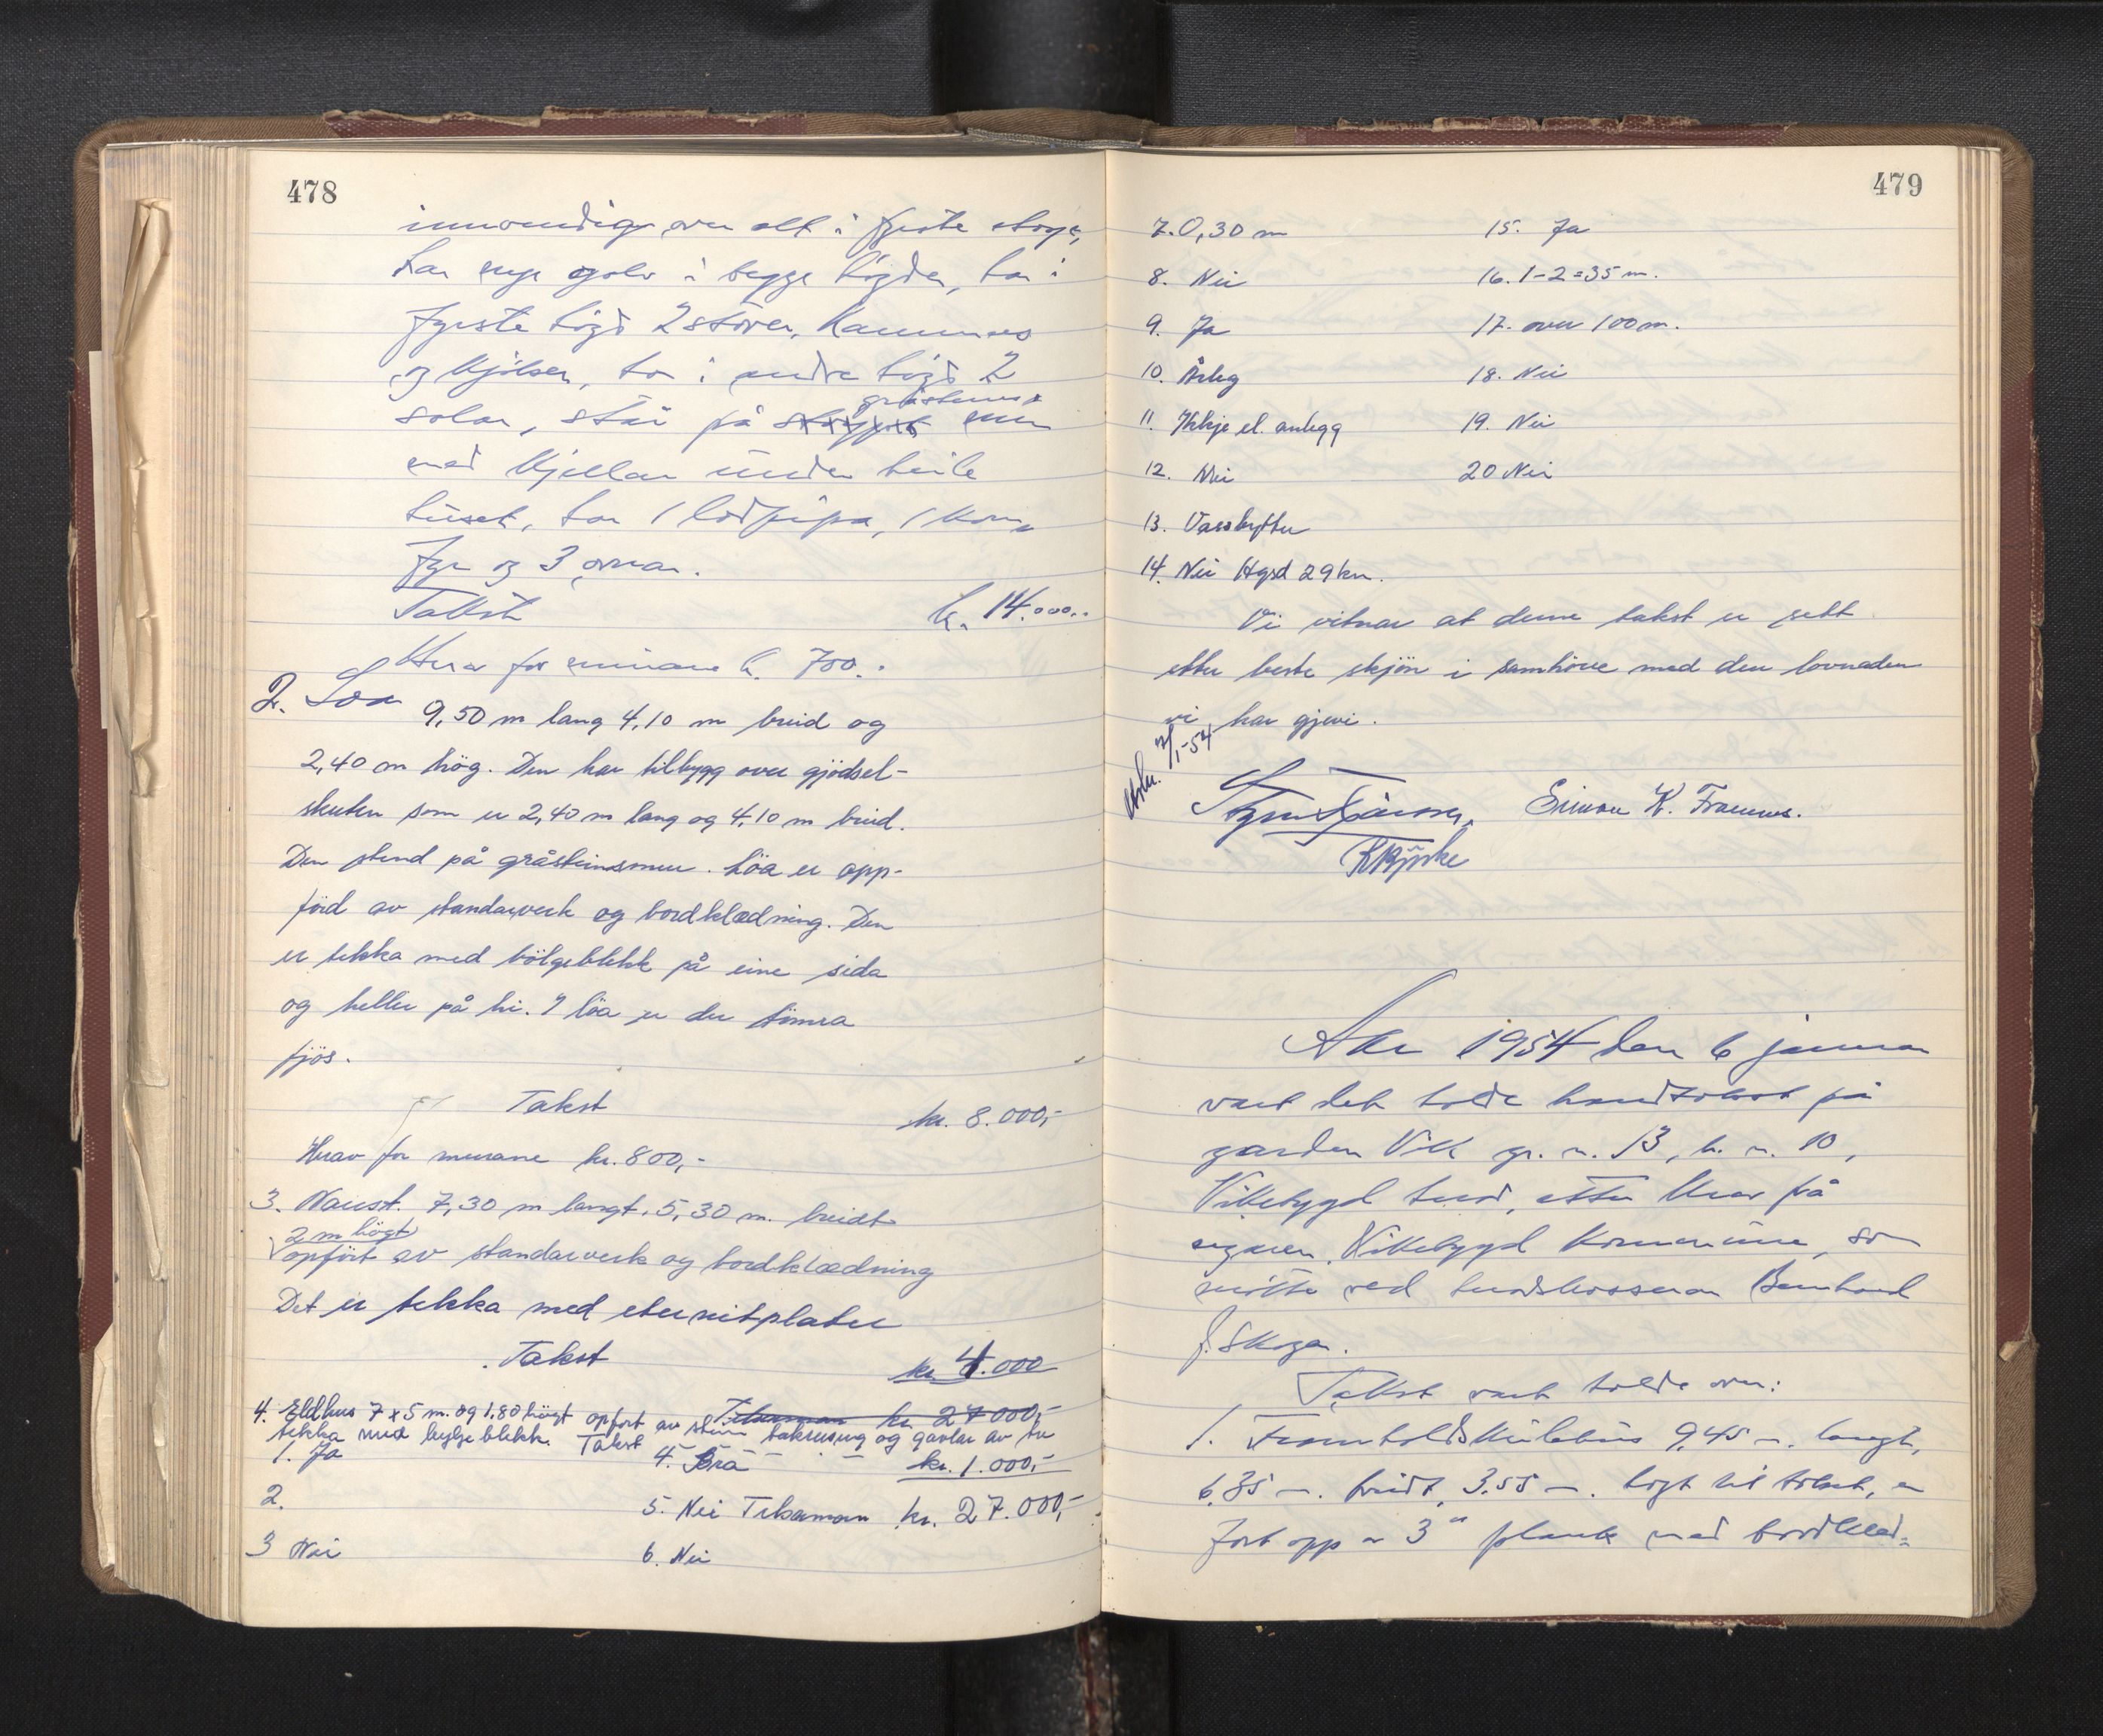 478
innvendig over alt i fyrste etage,
har nye golv i begge högder, har i
fyrste högd 2 stover, kammers
og kjöken, har i andre högd 2
gråsteins
solar, står på støypt mur
med kjellar under heile
huset, har 1 lodpipa, 1 kom
fyr og 3 omnar.
Takst kr. 14.000,-
Herav for murane kr. 700.-
2. Löa 9,50 m lang 4,10 m breid og
2,40 m hög. Den har tilbygg over gjödsel-
skuten som er 2,40 m lang og 4,10 m breid.
Den stend på gråsteinsmur. Löa er opp-
förd av standarverk og bordklædning. Den
er tekka med bölgeblekk på eine sida
og heller på hi. I löa er der tömra
fjös.
Takst kr. 8.000,-
Herav for murane kr. 800,-
3. Naust. 7,30 m langt. 5,30 m. breidt
2 m högt
opfört av standarverk og bordklædning
Det er tekka med eternitplater
Takst kr. 4.000
Tilsaman kr. 27000,-
4. Eldhus 7 x 5 m. og 1.80 högt opfört av stein takreising og gavlar av tre
tekka med bylgjeblekk. Takst kr. 1.000,-
1. Ja 4. Bra
2. 5. Nei Tilsaman kr. 27.000,-
3 Nei 6. Nei
479
7. 0,30 m 15. Ja
8. Nei 16. 1-2=35 m.
9. Ja 17. over 100 m.
10. Årleg 18. Nei
11. Ikkje el. anlegg 19. Nei
12. Nei 20 Nei
13. Vassbytter
14. Nei Hgsd 29 km.
Vi vitnar at denne takst er sett
etter beste skjön i samhöve med den lovnaden
vi har gjevi.
/1-54
Simon K. Framnes.
År 1954 den 6 januar
vart det halde brandtakst på
garden Vik gr. n. 13, br. n. 10,
Vikebygd herad, etter krav på
eigaren Vikebygd kommune, som
mötte ved heradskasserar Bernhard
J. Skogen.
Takst vart halde over:
1. Framhaldskulehus 9,45 m. langt,
6,35 m. breidt, 3.55 m. högt til taket, er
fört opp av 3" plank med bordklæd-